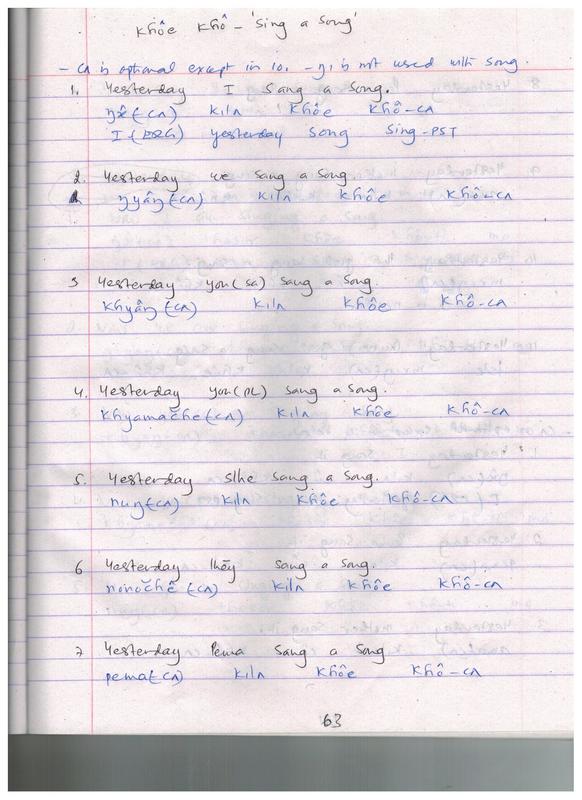 khôe khô - 'Sing a Song'
- cʌ is optional except in 10. - ŋi is not used with song.
1. Yesterday I sang a song.
ŋê(-cʌ) kilʌ khôe khô-cʌ
I (ERG) yesterday song sing-PST
2. Yesterday we sang a song
ŋyâŋ(-cʌ) kilʌ khôe khô-cʌ
3 Yesterday you(SG) sang a song.
khyâŋ(-cʌ) kilʌ khôe khô-cʌ
4. Yesterday you(PL) sang a song.
khyamače(-cʌ) kilʌ khôe khô-cʌ
5. Yesterday s/he sang a song.
nuŋ(-cʌ) kilʌ khôe khô-cʌ
6 Yesterday they sang a song.
nonočhê (-cʌ) kilʌ khôe khô-cʌ
7 Yesterday Pema sang a song
pema(-cʌ) kilʌ khôe khô-cʌ
63